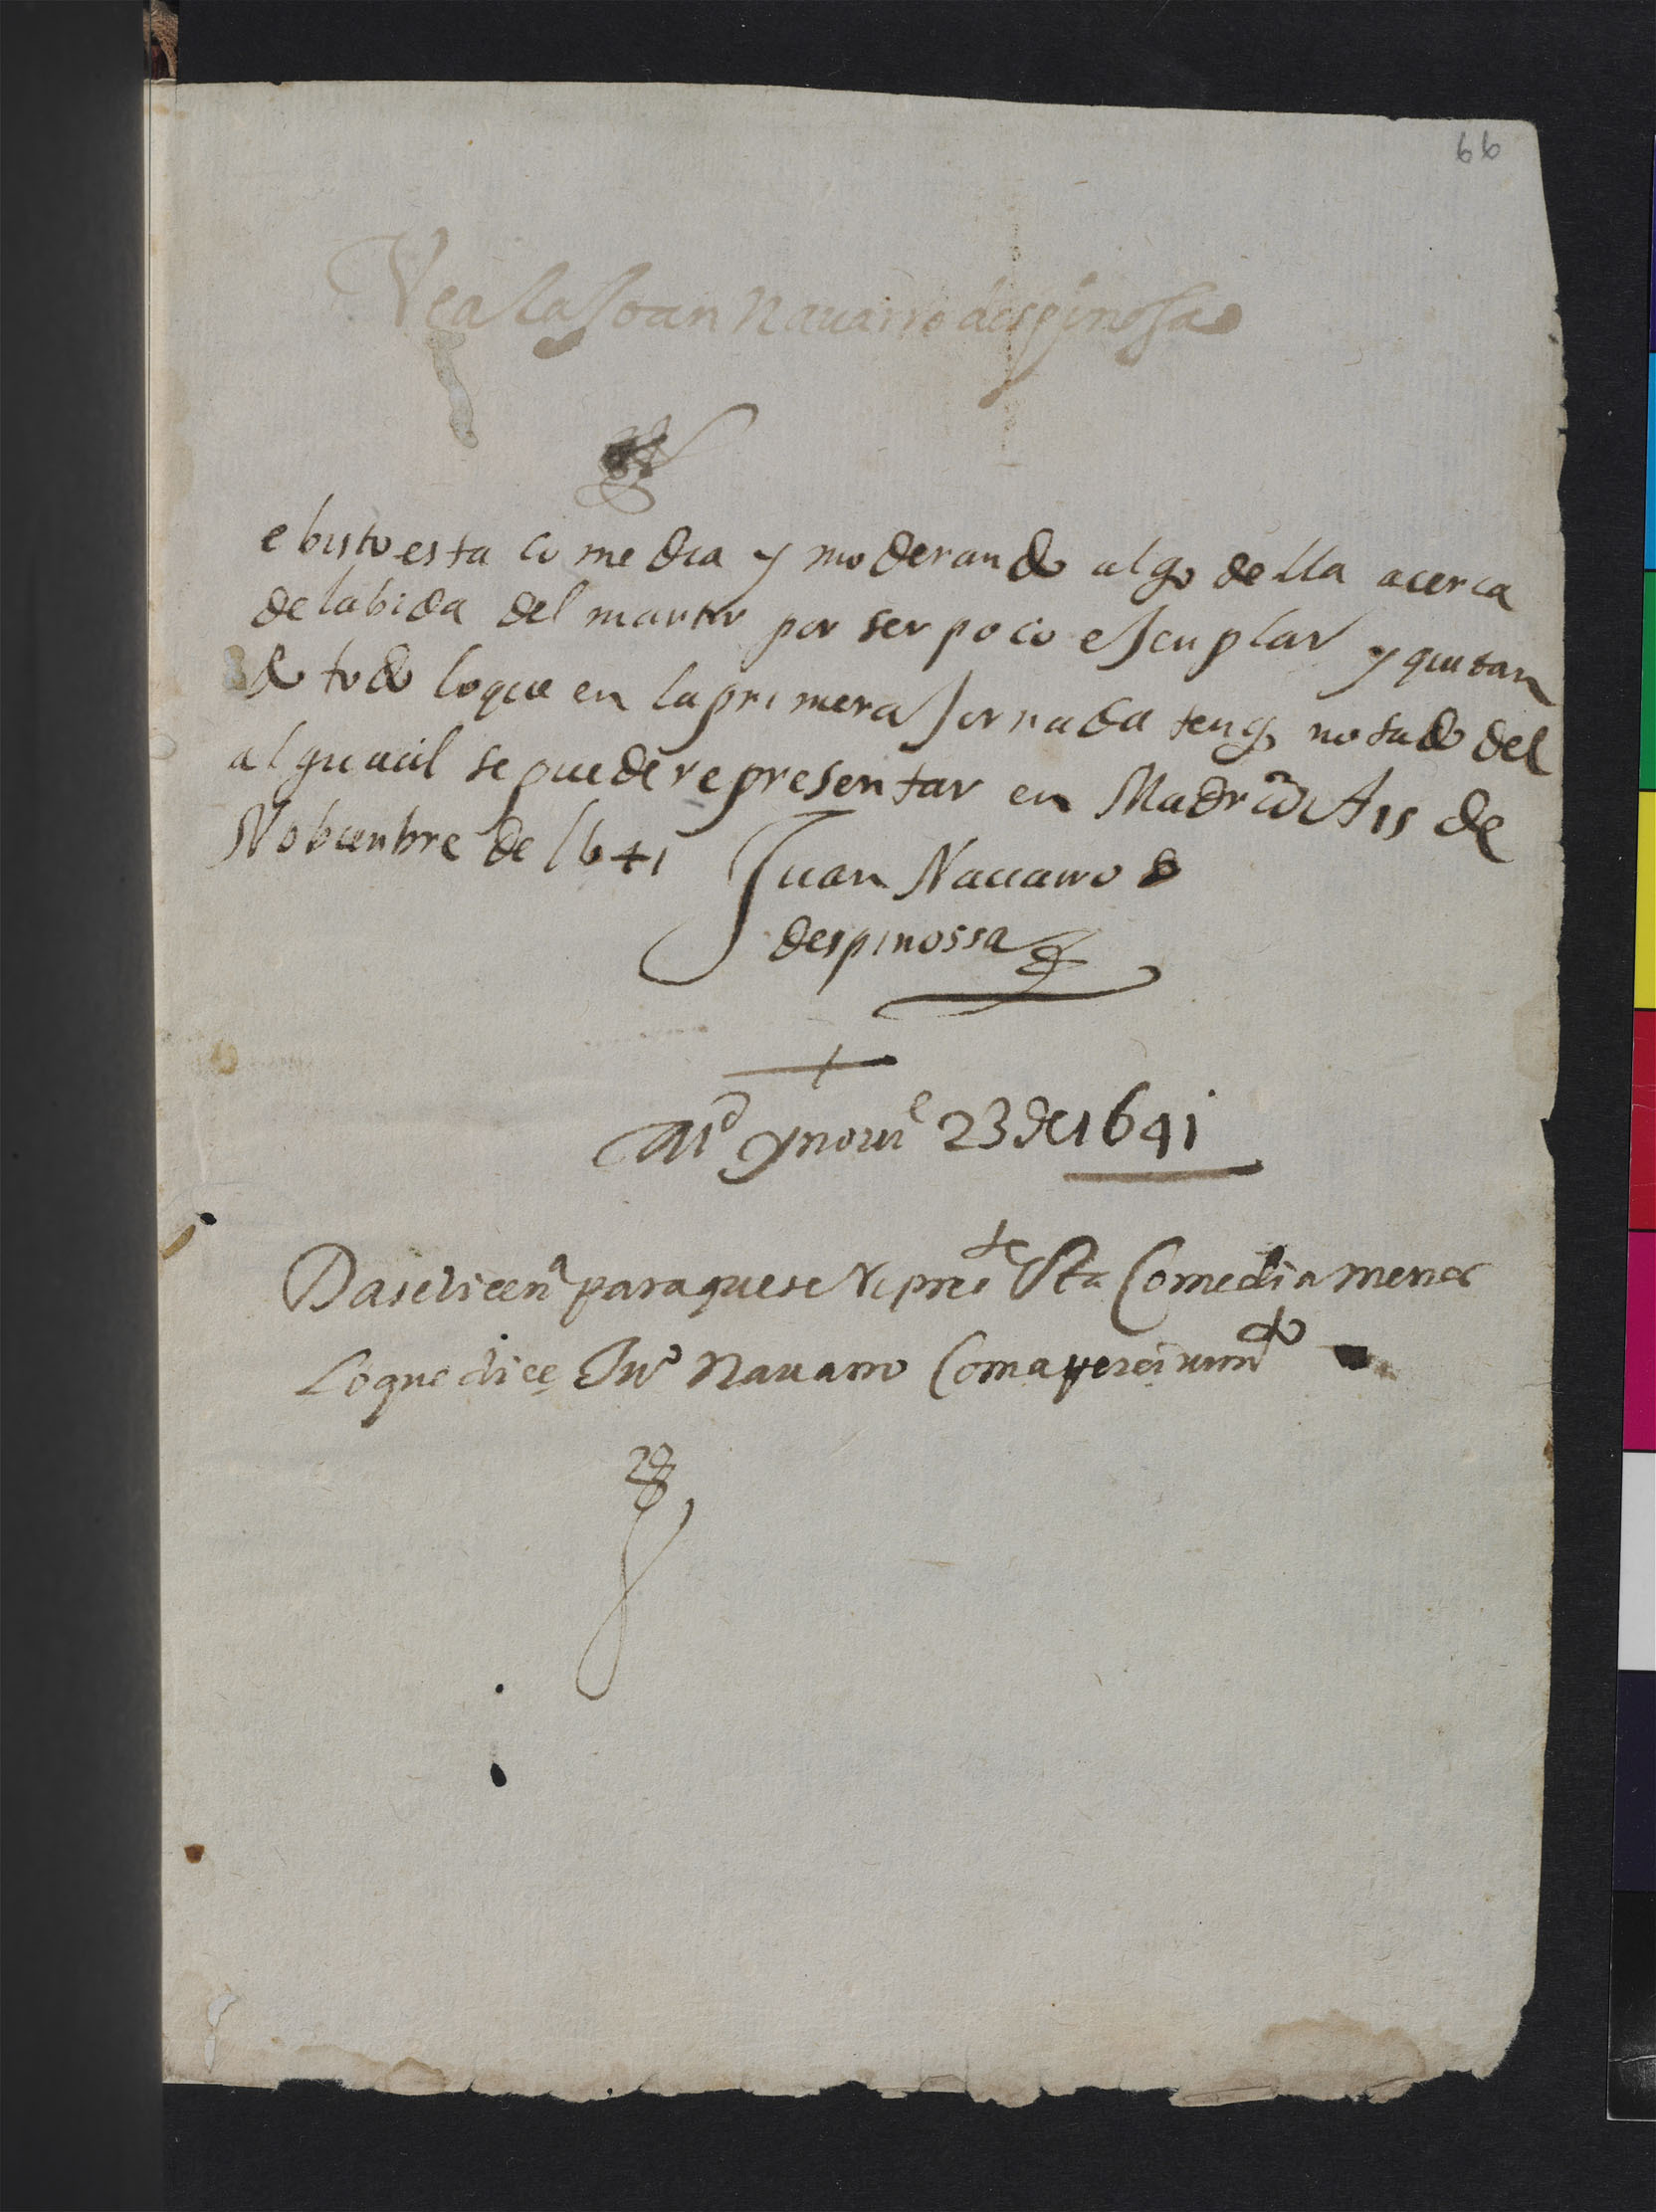 66
Veala Joan Nauarro despinosa
e bisto esta comedia y moderando algo della acerca
de la bida del martir por ser poco ejenplar y quitan
do todo lo que en la primera Jornada tengo notado del
alguacil se puede representar en Madrid A 15 de
Nobienbre de 1641
Juan Nauarro
despinossa
Md y nouie 23 de 1641
Dase licena para que se Represte esta Comedia menos
lo que dice Juo Nauarro Con aperciuimdo